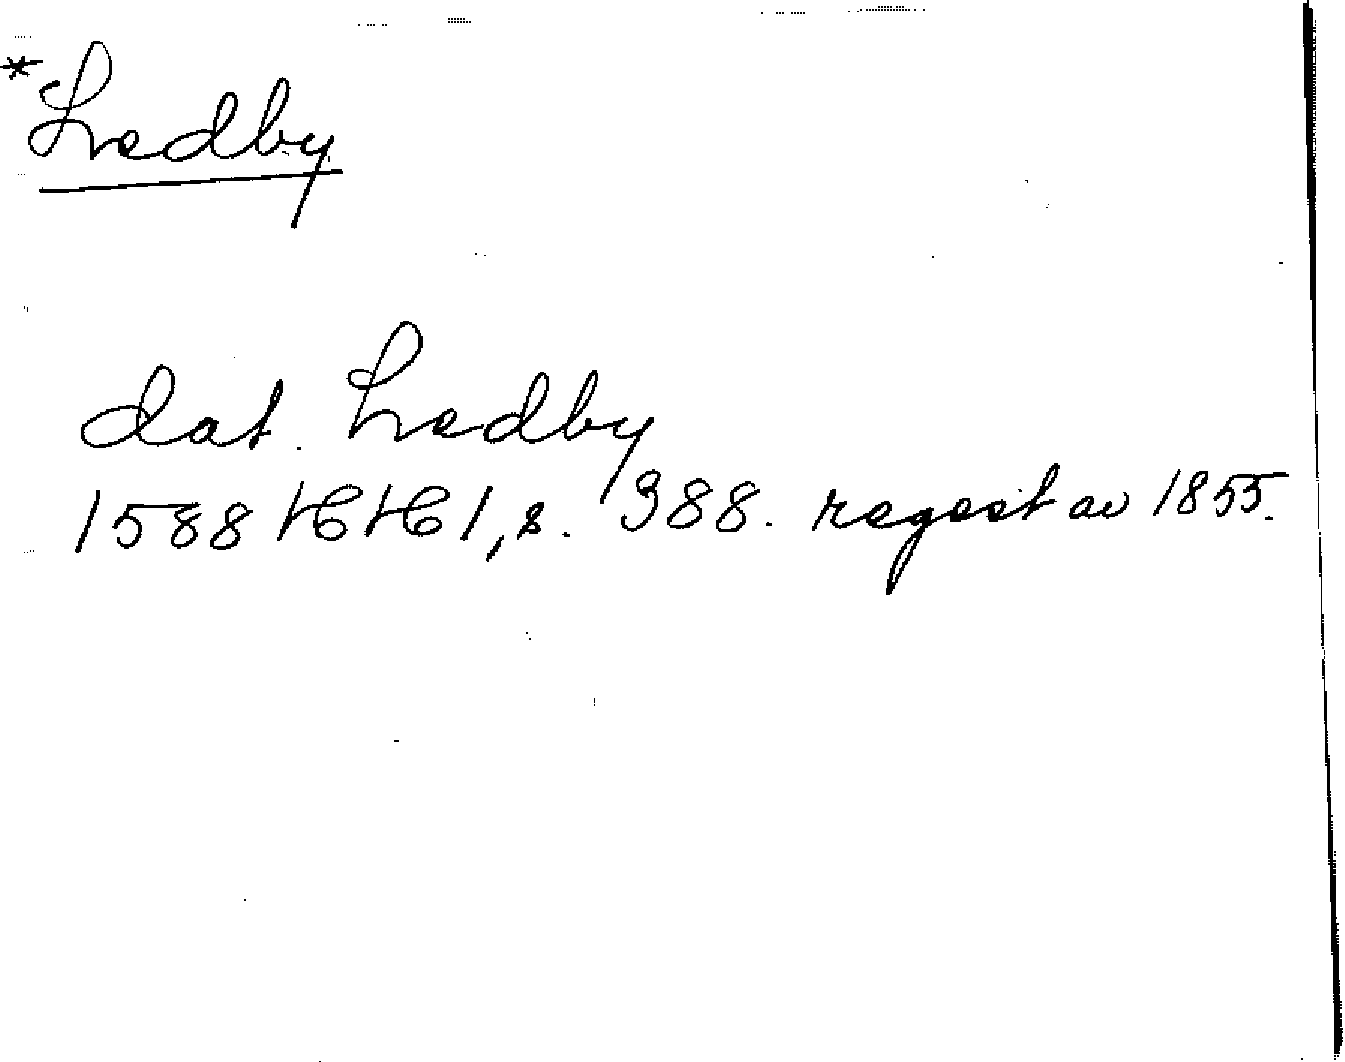 *Ledby
dat. Ledby
1588 HHI, s. 388. regest av 1855.